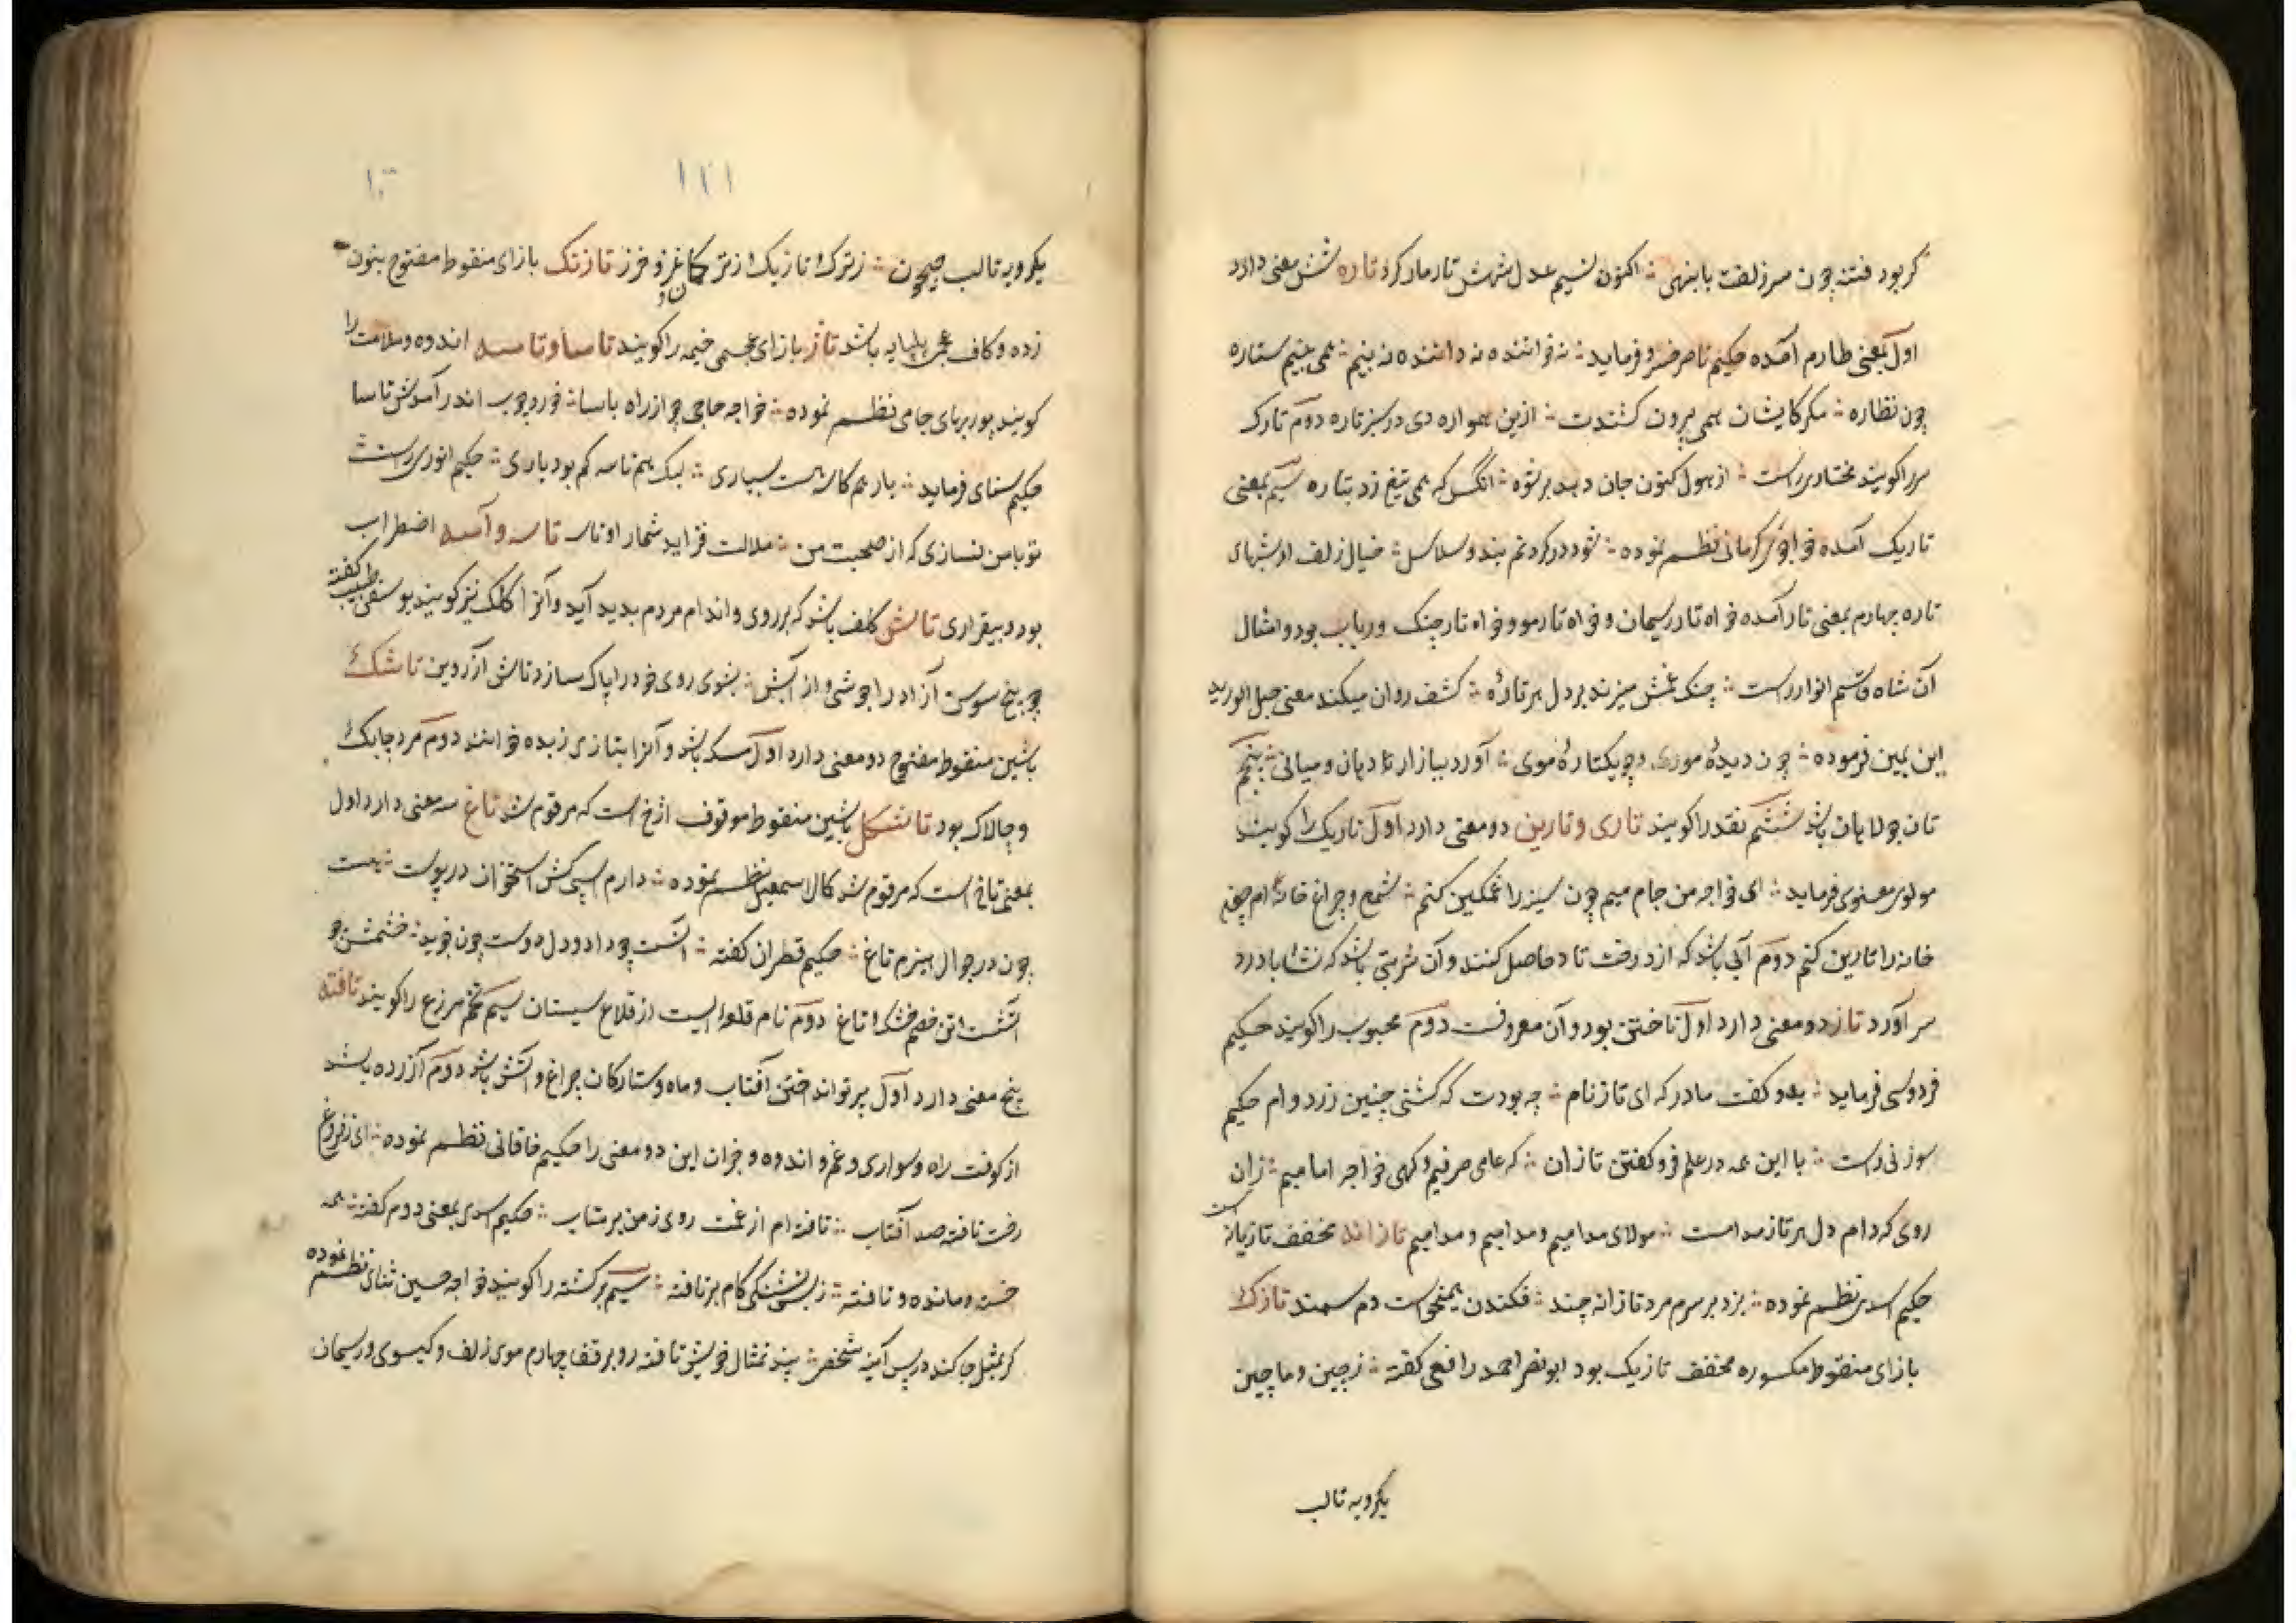 کر بود فتنه چون سر زلفت با بنهی ؞ اکنون نسیم عدل شهش تار مار کرد تاره شش معنی دارد
اول بمعنی طارم آمده حکیم ناصر خسرو فرماید ؞ نه خواننده نه داننده نه بینم ؞ همی بینم ستاره
چون نظاره ؞ مکر کایشان همی بیرون کشندت ؞ ازین همواره دی در سبز تاره دوم تارک
سر را کویند مختاری راست ؞ از هول کنون جان دهد بر تو ؞ انکس که همی تیغ زد بتاره سیم بمعنی
تاریک آمده خواجوی کرمانی نظم نموده ؞ شود در کردنم بند و سلاسل ؞ خیال زلف او شبهای
تاره چهارم بمعنی تار آمده خواه تار ریسمان و خواه تار مو و خواه تار چنک و رباب بود و امثال
آن شاه قاسم انوار راست ؞ چنک غمش میزند بر دل هر تارهٔ ؞ کشف روان میکند معنی حبل الورید
ابن یمین فرموده ؞ چون دیدهٔ موری و چو یکتارهٔ موی ؞ آورد ببازار تا دهان و میانی ؞ پنجم
تان جولاهان باشد ششم نقد را کویند تاری و تارین دو معنی دارد اول تاریک را کویند
مولوی معنوی فرماید ؞ ای خواجه من جام میم چون سینه را غمکین کنم ؞ شمع و چراغ خانه ام چون
خانه را تارین کنم دوم آبی باشد که از درخت تاد حاصل کنند و آن شربتی باشد که نشا با درد
سر آورد تاز دو معنی دارد اول تاختن بود و آن معروفست دوم محبوب را کویند حکیم
فردوسی فرماید ؞ بدو کفت مادر که ای تاز نام ؞ چه بودت که کشتی چنین زرد وام حکیم
سوزنی راست ؞ با این همه در علم فرو کفتن تازان ؞ که عامی صرفیم و کهی خواجه امامیم ؞ زان
روی که دام دل هر تاز مدام است ؞ مولای مدامیم و مدامیم و مدامیم تازانه مخفف تازیانه است
حکیم اسدی نظم نموده ؞ بزد بر سرم مرد تازانه چند ؞ فکندن همیخواست دم سمند تازک
بازای منقوط مکسوره مخفف تازیک بود ابونصر احمد رافعی کفته ؞ ز چین و ماچین
یکرویه تالب
۱۲۱
یکرویه تالب جیحون ؞ ز ترک و تازیک از ترکمان و غز و خزر تازنک بازای منقوط مفتوح بنون
زده و کاف عجمی پیلپایه باشد تاژ بازای عجمی خیمه را کویند تاسا و تاسه اندوه و ملامت را
کویند پور بهای جامی نظم نموده ؞ خواجه حاجی چو از راه باسا ؞ خورد چوب اندر آمدش تاسا
حکیم سنای فرماید ؞ بار هم کاسه است بسیاری ؞ لیک هم تاسه کم بود باری ؞ حکیم انوری راست
تو با من نسازی که از صحبت من ؞ ملالت فزاید شمار او تاسه تاسه و آسه اضطراب
بود و بیقراری تاش کلف باشد که بر روی و اندام مردم بدید آید و آنرا کلک نیز کویند یوسفی طبیب کفته
چو بیخ سوسن آزاد را جوشی و از آبش ؞ بشوی روی خود را پاک سازد تاش از روین تاشک
باشین منقوط مفتوح دو معنی دارد اول مسکه باشد و آنرا بتازی زبده خوانند دوم مرد چابک
و چالاک بود تاشکل باشین منقوط موقوف اژخ است که مرقوم شد تاغ سه معنی دارد اول
بمعنی تاخ است که مرقوم شد کمال اسمعیل نظم نموده ؞ دارم اسپی کش استخوان در پوست ؞ هست
چون در جوال هیزم تاغ ؞ حکیم قطران کفته ؞ آتشت چو داد و دل دوست چون خوید ؞ خشمش چو
آتشت و تن خصم خشک تاغ دوم نام قلعه ایست از قلاع سیستان سیم تخم مرغ را کویند تافته
پنج معنی دارد اول پرتو انداختن آفتاب و ماه و ستارکان چراغ و آتش باشد دوم آزرده باشد
از کوفت راه و سواری و غم و اندوه و جز آن این دو معنی را حکیم خاقانی نظم نموده ؞ ای ز فروغ
رخت تافته صد آفتاب ؞ تافته ام از غمت روی ز من بر متاب ؞ حکیم اسدی بمعنی دوم کفته ؞ همه
خسته و مانده و تافته ؞ ز بس تشنکی کام بر تافته ؞ سیم برکشته را کویند خواجه حسین ثنای نظم نموده
کر بمثل جا کند در پس آینه شخص ؞ بیند تمثال خویش تافته رو بر قفا چهارم موی زلف و کیسوی و ریسمان